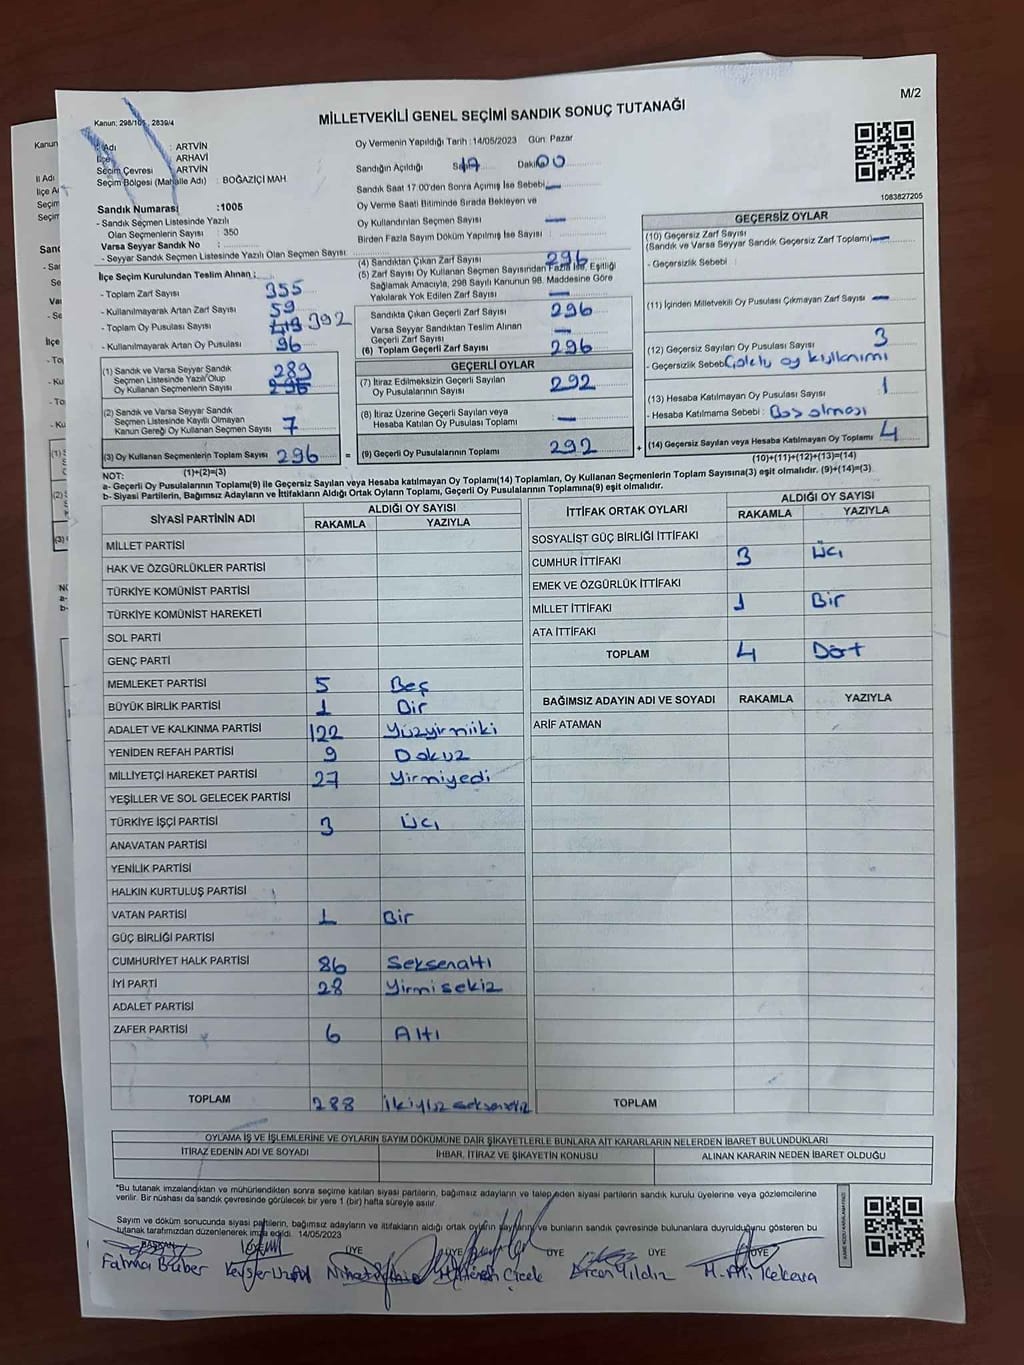 M/2
Kanun: 298/105, 2839/4
MİLLETVEKİLİ GENEL SEÇİMİ SANDIK SONUÇ TUTANAĞI
İl Adı : ARTVİN
İlçe : ARHAVİ
Seçim Çevresi : ARTVİN
Seçim Bölgesi (Mahalle Adı) : BOĞAZİÇİ MAH.
Sandık Numarası :1005
- Sandık Seçmen Listesinde Yazılı
Olan Seçmenlerin Sayısı : 350
Varsa Seyyar Sandık No :
- Seyyar Sandık Seçmen Listesinde Yazılı Olan Seçmen Sayısı :
İlçe Seçim Kurulundan Teslim Alınan :
- Toplam Zarf Sayısı 355
- Kullanılmayarak Artan Zarf Sayısı 59
- Toplam Oy Pusulası Sayısı 392
- Kullanılmayarak Artan Oy Pusulası 96
(1) Sandık ve Varsa Seyyar Sandık
Seçmen Listesinde Yazılı Olup
Oy Kullanan Seçmenlerin Sayısı 289
(2) Sandık ve Varsa Seyyar Sandık
Seçmen Listesinde Kayıtlı Olmayan
Kanun Gereği Oy Kullanan Seçmen Sayısı 7
(3) Oy Kullanan Seçmenlerin Toplam Sayısı 296 =
(1)+(2)=(3)
Oy Vermenin Yapıldığı Tarih :14/05/2023 Gün: Pazar
Sandığın Açıldığı Saat 17 Dakika 00
Sandık Saat 17.00'den Sonra Açımış İse Sebebi
Oy Verme Saati Bitiminde Sırada Bekleyen ve
Oy Kullandırılan Seçmen Sayısı
Birden Fazla Sayım Döküm Yapılmış İse Sayısı :
(4) Sandıktan Çıkan Zarf Sayısı 296
(5) Zarf Sayısı Oy Kullanan Seçmen Sayısından Fazla İse, Eşitliği
Sağlamak Amacıyla, 298 Sayılı Kanunun 98. Maddesine Göre
Yakılarak Yok Edilen Zarf Sayısı
Sandıkta Çıkan Geçerli Zarf Sayısı 296
Varsa Seyyar Sandıktan Teslim Alınan
Geçerli Zarf Sayısı
(6) Toplam Geçerli Zarf Sayısı 296
GEÇERLİ OYLAR
(7) İtiraz Edilmeksizin Geçerli Sayılan
Oy Pusulalarının Sayısı 292
(8) İtiraz Üzerine Geçerli Sayılan veya
Hesaba Katılan Oy Pusulası Toplamı
(9) Geçerli Oy Pusulalarının Toplamı 292 +
1083827205
GEÇERSİZ OYLAR
(10) Geçersiz Zarf Sayısı
(Sandık ve Varsa Seyyar Sandık Geçersiz Zarf Toplamı)
- Geçersizlik Sebebi :
(11) İçinden Milletvekili Oy Pusulası Çıkmayan Zarf Sayısı
(12) Geçersiz Sayılan Oy Pusulası Sayısı 3
- Geçersizlik Sebebi oy kullanımı
(13) Hesaba Katılmayan Oy Pusulası Sayısı 1
- Hesaba Katılmama Sebebi : Boş olması
(14) Geçersiz Sayılan veya Hesaba Katılmayan Oy Toplamı 4
(10)+(11)+(12)+(13)=(14)
NOT:
a- Geçerli Oy Pusulalarının Toplamı(9) ile Geçersiz Sayılan veya Hesaba katılmayan Oy Toplamı(14) Toplamları, Oy Kullanan Seçmenlerin Toplam Sayısına(3) eşit olmalıdır. (9)+(14)=(3)
b- Siyasi Partilerin, Bağımsız Adayların ve İttifakların Aldığı Ortak Oyların Toplamı, Geçerli Oy Pusulalarının Toplamına(9) eşit olmalıdır.
SİYASİ PARTİNİN ADI ALDIĞI OY SAYISI
RAKAMLA YAZIYLA
MİLLET PARTİSİ
HAK VE ÖZGÜRLÜKLER PARTİSİ
TÜRKİYE KOMÜNİST PARTİSİ
TÜRKİYE KOMÜNİST HAREKETİ
SOL PARTİ
GENÇ PARTİ
MEMLEKET PARTİSİ 5 Beş
BÜYÜK BİRLİK PARTİSİ 1 Bir
ADALET VE KALKINMA PARTİSİ 122 Yüzyirmiiki
YENİDEN REFAH PARTİSİ 9 Dokuz
MİLLİYETÇİ HAREKET PARTİSİ 27 Yirmiyedi
YEŞİLLER VE SOL GELECEK PARTİSİ
TÜRKİYE İŞÇİ PARTİSİ 3 Üç
ANAVATAN PARTİSİ
YENİLİK PARTİSİ
HALKIN KURTULUŞ PARTİSİ
VATAN PARTİSİ 1 Bir
GÜÇ BİRLİĞİ PARTİSİ
CUMHURİYET HALK PARTİSİ 86 Seksenaltı
İYİ PARTİ 28 Yirmisekiz
ADALET PARTİSİ
ZAFER PARTİSİ 6 Altı
TOPLAM 288 İkiyüzseksensekiz
İTTİFAK ORTAK OYLARI ALDIĞI OY SAYISI
RAKAMLA YAZIYLA
SOSYALİST GÜÇ BİRLİĞİ İTTİFAKI
CUMHUR İTTİFAKI 3 Üç
EMEK VE ÖZGÜRLÜK İTTİFAKI
MİLLET İTTİFAKI 1 Bir
ATA İTTİFAKI
TOPLAM 4 Dört
BAĞIMSIZ ADAYIN ADI VE SOYADI RAKAMLA YAZIYLA
ARİF ATAMAN
TOPLAM
OYLAMA İŞ VE İŞLEMLERİNE VE OYLARIN SAYIM DÖKÜMÜNE DAİR ŞİKAYETLERLE BUNLARA AİT KARARLARIN NELERDEN İBARET BULUNDUKLARI
İTİRAZ EDENİN ADI VE SOYADI İHBAR, İTİRAZ VE ŞİKAYETİN KONUSU ALINAN KARARIN NEDEN İBARET OLDUĞU
*Bu tutanak imzalandıktan ve mühürlendikten sonra seçime katılan siyasi partilerin, bağımsız adayların ve talep eden siyasi partilerin sandık kurulu üyelerine veya gözlemcilerine
verilir. Bir nüshası da sandık çevresinde görülecek bir yere 1 (bir) hafta süreyle asılır.
Sayım ve döküm sonucunda siyasi partilerin, bağımsız adayların ve ittifakların aldığı ortak oyların sayılarını ve bunların sandık çevresinde bulunanlara duyrulduğunu gösteren bu
tutanak tarafımızdan düzenlenerek imza edildi. 14/05/2023
BAŞKAN ÜYE ÜYE ÜYE ÜYE ÜYE ÜYE
Fatma Ercan Yıldız H. Ali